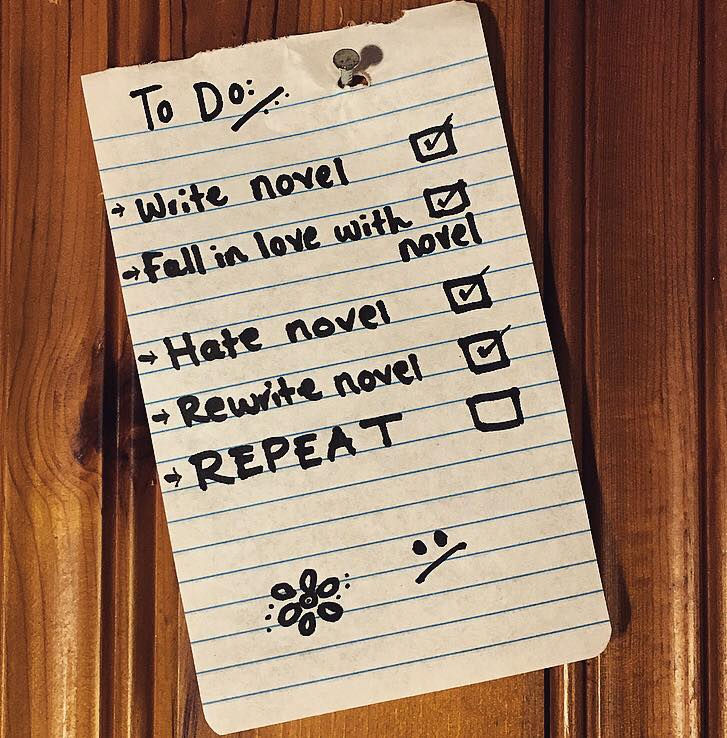 To Do:
→ Write novel
→ Fall in love with
novel
→ Hate novel
→ Rewrite novel
→ REPEAT